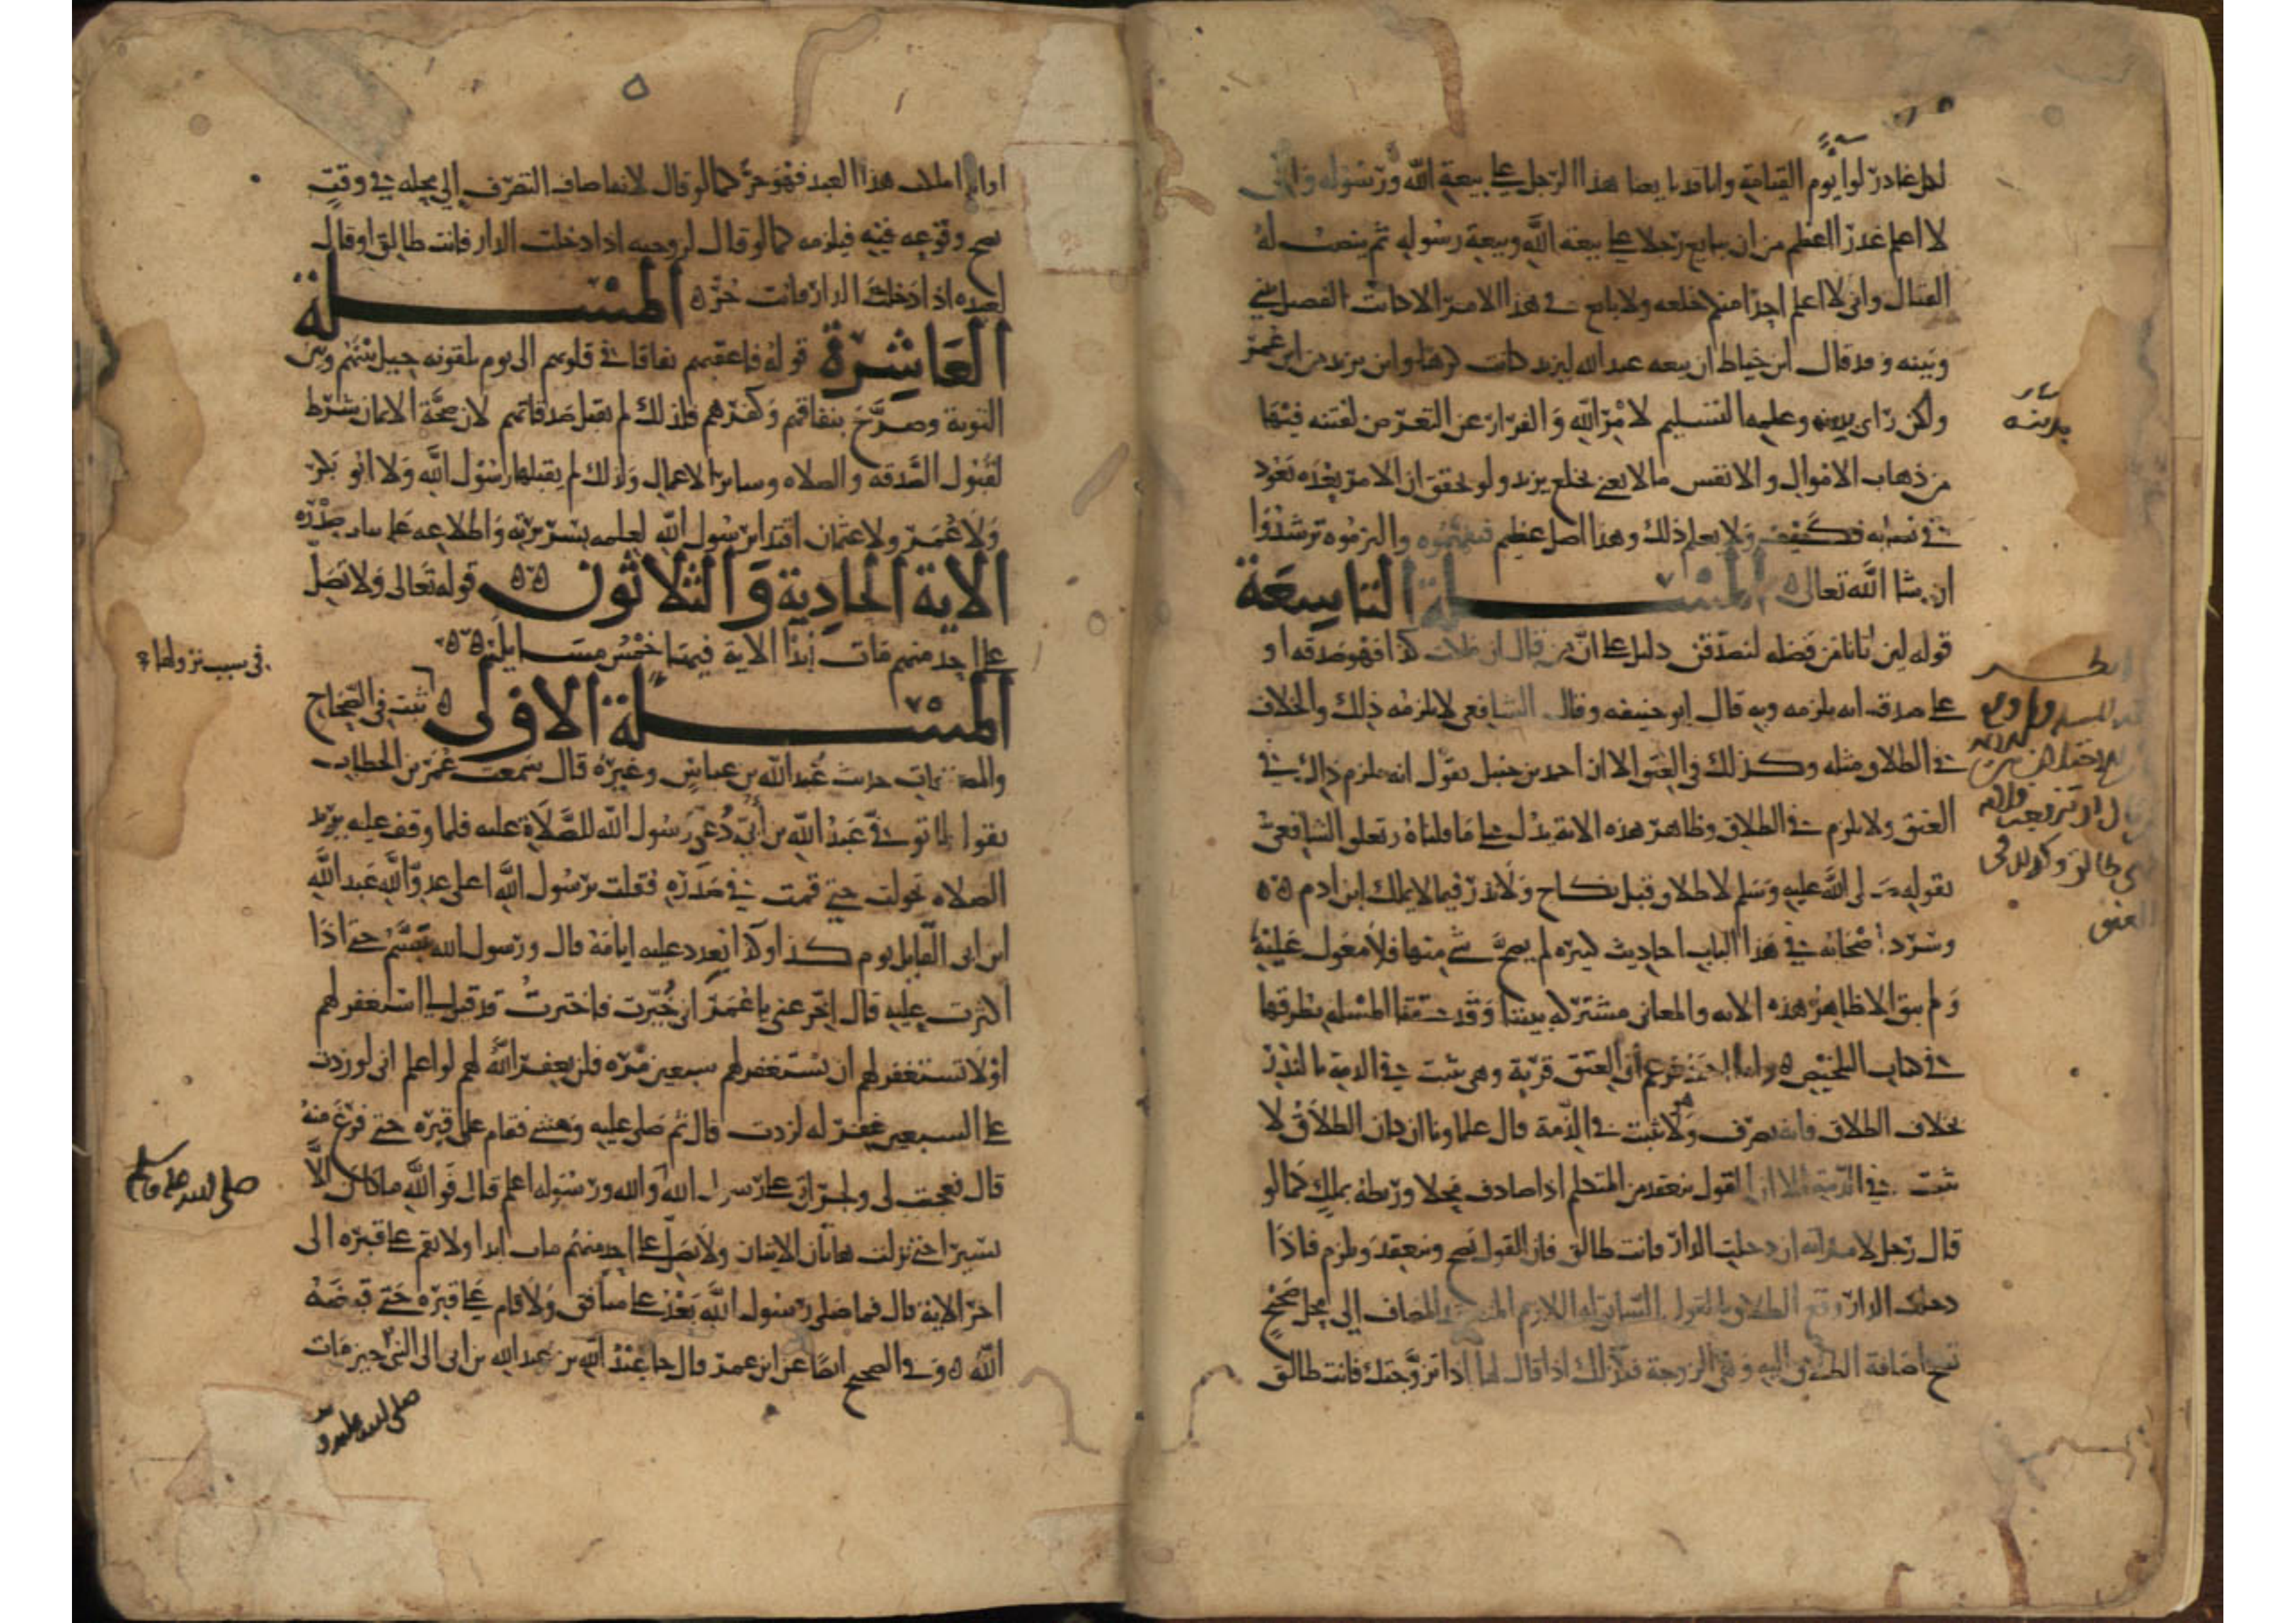 لكل غادر لوا يوم القيامة وانا قد بايعنا هذا الرجل على بيعة الله ورسوله واني
لا اعلم غدرا اعظم من ان يبايع رجلا على بيعة الله وبيعة رسوله ثم ينصب له
القتال واني لا اعلم احدا منكم خلعه ولا بايع في هذا الامر الا كانت الفصل بيني
وبينه وقد قال ابن خياط ان بيعة عبد الله ليزيد كانت كرها واين يزيد من ابن عمر
ولكن راى بدينه وعلمه التسليم لامر الله والفرار عن التعرض لفتنه فيها
من ذهاب الاموال والانفس ما لا يفي بخلع يزيد ولو تحقق ان الامر بعده يعود
في نصابه فكيف ولا يعلم ذلك وهذا اصل عظيم فتفهموه والزموه ترشدوا
ان شا الله تعالى ٥ المسلة التاسعة
قوله لين اتانا من فضله لنصدقن دليل على ان من قال ان ملكت كذا فهو صدقه او
على صدقه انه يلزمه وبه قال ابو حنيفه وقال الشافعي لا يلزمه ذلك والخلاف
في الطلاق مثله وكذلك في العتق الا ان احمد بن حنبل يقول انه يلزم ذلك في
العتق ولا يلزم في الطلاق وظاهر هذه الاية يدل على ما قلناه وتعلق الشافعي
بقوله صلى الله عليه وسلم لا طلاق قبل نكاح ولا نذر فيما لا يملك ابن ادم ٥٥
وسرد اصحابه في هذا الباب احاديث كثيره لم يصح شي منها فلا معول عليه
ولم يبق الا ظاهر هذه الايه والمعاني مشتركه بيننا وقد حققنا المسله بطرقها
في كتاب التلخيص ٥ واما احمد فزعم ان العتق قربة وهي تثبت في الذمة بالنذر
بخلاف الطلاق فانه تصرف ولا يثبت في الذمة قال علماونا ان كان الطلاق لا
يثبت في الذمة الا ان القول ينعقد من المتكلم اذا صادف محلا وربطه بملك كما لو
قال رجل لامراته ان دخلت الدار فانت طالق فان القول يصح وينعقد ويلزم فاذا
دخلت الدار وقع الطلاق بالقول السابق له اللازم المنعقد المضاف الى محل صحيح
تصح اضافة الطلاق اليه وهي الزوجة فكذلك اذا قال لها اذا تزوجتك فانت طالق
يدينه
طالق وكذلك في
العتق
او اذا املك هذا العبد فهو حر كما لو قال لانها اضاف التصرف الى محله في وقت
يصح وقوعه فيه فيلزمه كما لو قال لزوجيه اذا دخلت الدار فانت طالق او قال
لعبده اذا دخلت الدار فانت حر ٥ المسلة
العاشرة قوله فاعقبهم نفاقا في قلوبهم الى يوم يلقونه حيل بينهم وبين
التوبة وصرح بنفاقهم وكفرهم فلذلك لم يقبل صدقاتهم لان صحة الايمان شرط
لقبول الصدقه والصلاه وساير الاعمال ولذلك لم يقبلها رسول الله ولا ابو بكر
ولا عمر ولا عثمان اقتدا برسول الله لعلمه بسريرته واطلاعه على بنات صدره
الاية الحادية والثلاثون ٥٥ قوله تعالى ولا تصل
على احد منهم مات ابدا الاية فيها خمس مسايل ٥٥
المسلة الاولى ٥ ثبت في الصحاح
والمصنفات حديث عبد الله بن عباس وغيره قال سمعت عمر بن الخطاب
يقول لما توفي عبد الله بن ابي دعي رسول الله للصلاة عليه فلما وقف عليه يريد
الصلاه تحولت حتى قمت في صدره فقلت يرسول الله اعلى عدو الله عبد الله
ابن ابي القايل يوم كذا وكذا يعدد عليه ايامه قال ورسول الله يتبسم حتى اذا
اكثرت عليه قال اخر عني يا عمر اني خيرت فاخترت قد قيل لي استغفر لهم
او لا تستغفر لهم ان تستغفر لهم سبعين مره فلن يغفر الله لهم لو اعلم اني لو زدت
على السبعين يغفر له لزدت قال ثم صلى عليه ومشى فقام على قبره حتى فرغ منه
قال فعجبت لي ولجراتي على رسول الله والله ورسوله اعلم قال فوالله ما كان الا
يسيرا حتى نزلت هاتان الايتان ولا تصل على احد منهم مات ابدا ولا تقم على قبره الى
اخر الاية قال فما صلى رسول الله بعد على منافق ولا قام على قبره حتى قبضه
الله ٥ وفي الصحيح ايضا عن ابن عمر قال جا عبد الله بن عبد الله بن ابي الى النبي حين مات
في سبب نزولها
صلى الله عليه وسلم
صلى الله عليه و